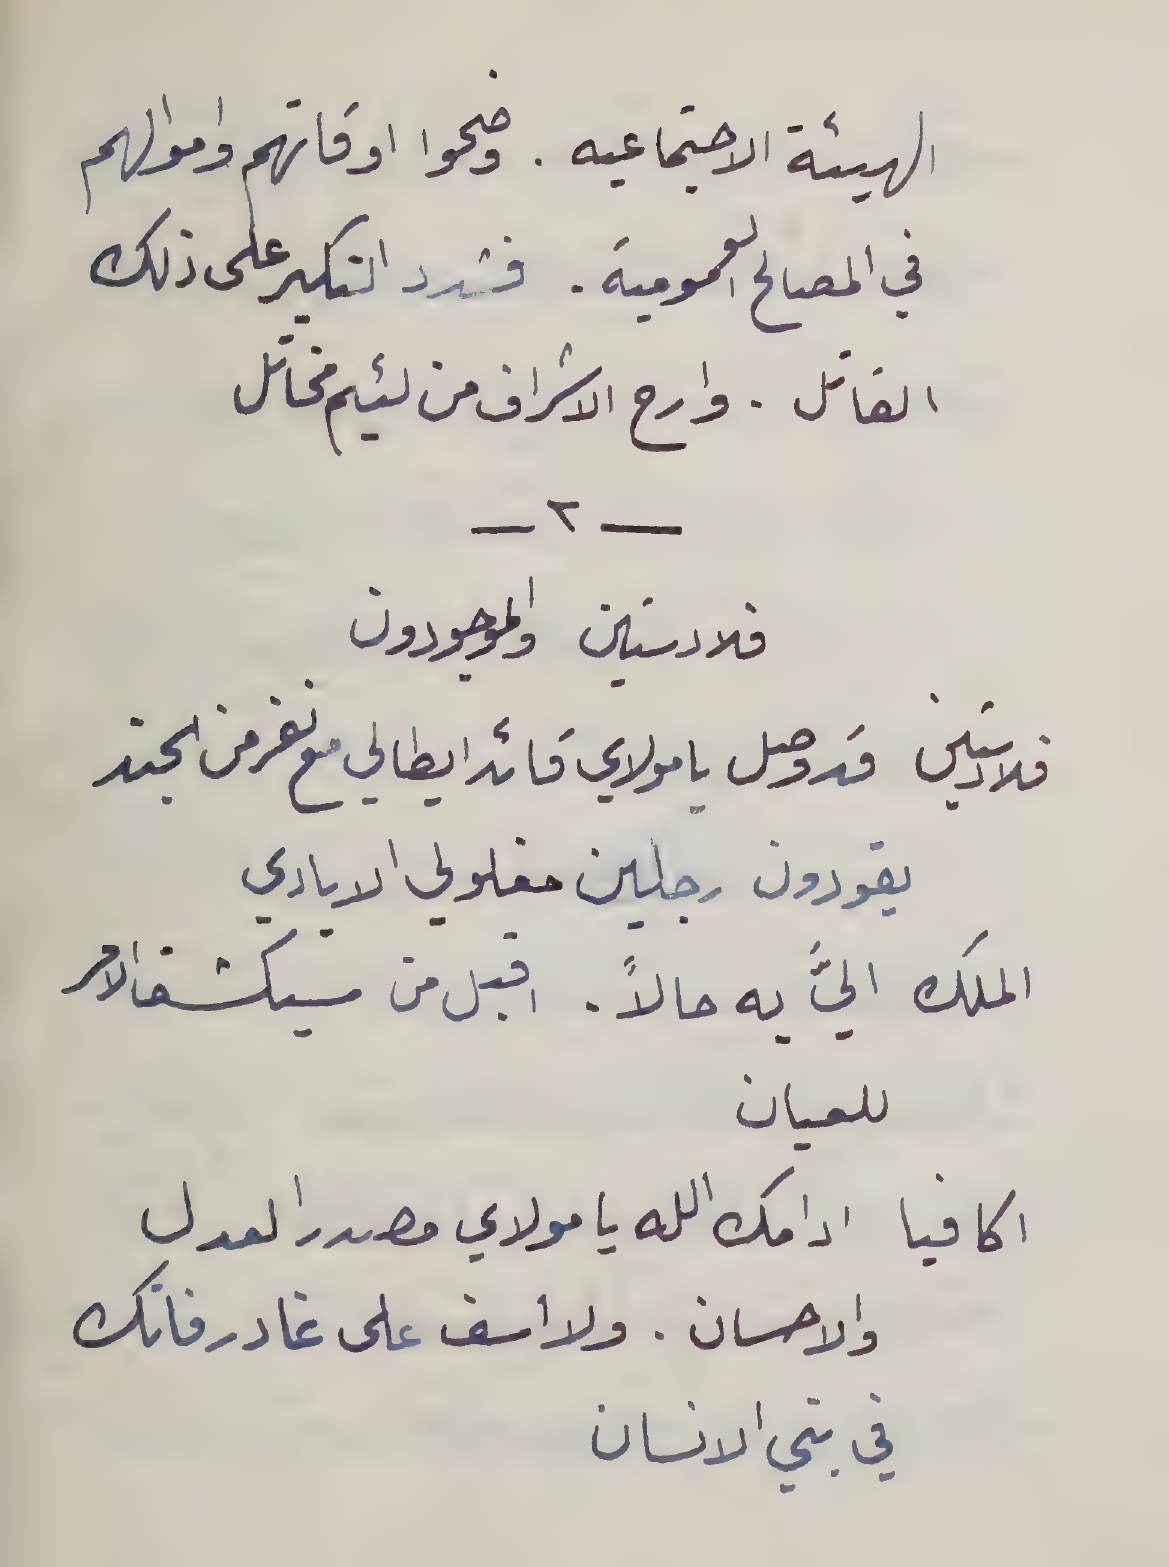 الهيئة الاجتماعيه . وضحوا اوقاتهم واموالهم
في المصالح العمومية . فشدد النكير على ذلك
القاتل . وارح الاشراف من لئيم مخاتل
— ٢ —
فلادستين والموجودون
فلادستين قد وصل يا مولاي قائد ايطالي مع نفر من الجند
يقودون رجلين مغلولي الايادي
الملك اليَّ به حالاً . اقبل من سيكشف الامر
للعيان
اكافيا ادامك الله يا مولاي مصدر العدل
والاحسان . ولا اسف على غادر فاتك
في بني الانسان